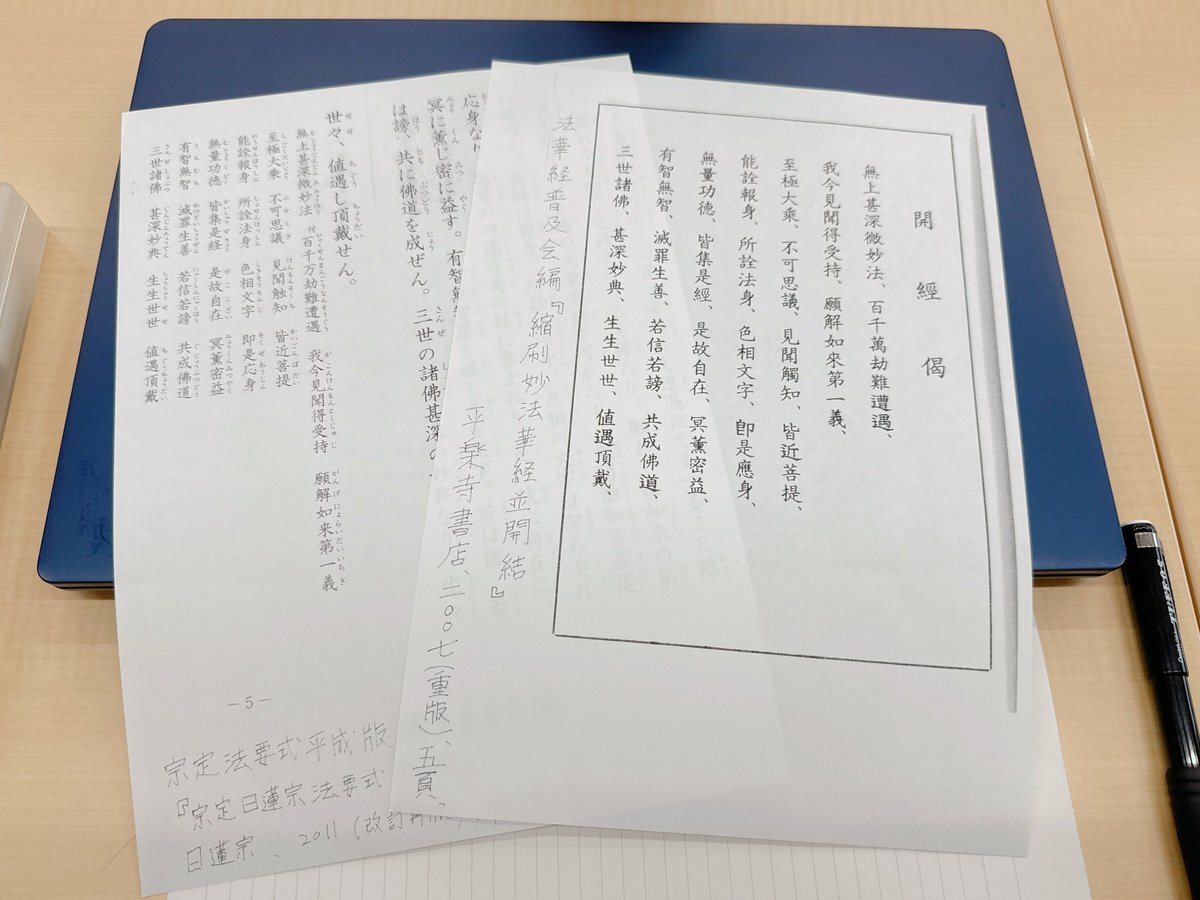 開經偈
無上甚深微妙法、百千萬劫難遭遇、
我今見聞得受持、願解如来第一義、
至極大乘、不可思議、見聞觸知、皆近菩提、
能詮報身、所詮法身、色相文字、卽是應身、
無量功德、皆集是經、是故自在、冥薰密益、
有智無智、滅罪生善、若信若謗、共成佛道、
三世諸佛、甚深妙典、生生世世、値遇頂戴、
法華経普及会編『縮刷妙法華経並開結』
平楽寺書店、二〇〇七(重版)、五頁。
応身な
冥に薫じ密に益す。有智無
は謗、共に佛道を成ぜん。三世の諸佛甚深の
世々、値遇し頂戴せん。
無上甚深微妙法 百千万劫難遭遇 我今見聞得受持 願解如来第一義
至極大乗 不可思議 見聞触知 皆近菩提
能詮報身 所詮法身 色相文字 即是応身
無量功徳 皆集是経 是故自在 冥薫密益
有智無智 滅罪生善 若信若謗 共成佛道
三世諸佛 甚深妙典 生生世世 値遇頂戴
-5-
宗定法要式平成版
『宗定日蓮宗法要式
日蓮宗、2011(改訂